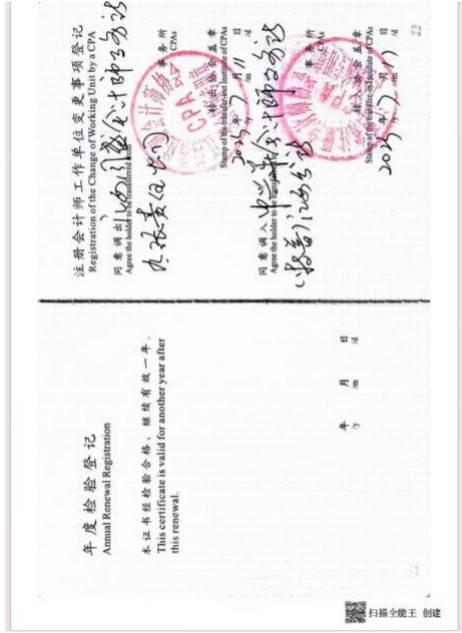 年度检验登记
Annual Renewal Registration
本证书经检验合格，继续有效一年。
This certificate is valid for another year after
this renewal.
年 月 日
/y /m /d
注册会计师工作单位变更事项登记
Registration of the Change of Working Unit by a CPA
同意调出
Agree the holder to be transferred from
会计师事务所
有限责任公司
事务所
CPAs
CPA
转出协会盖章
Stamp of the transfer-out Institute of CPAs
2023年7月11日
/y /m /d
同意调入
Agree the holder to be transferred to
会计师事务所
事务所
CPAs
CPA
转入协会盖章
Stamp of the transfer-in Institute of CPAs
年 月 日
/y /m /d
扫描全能王 创建